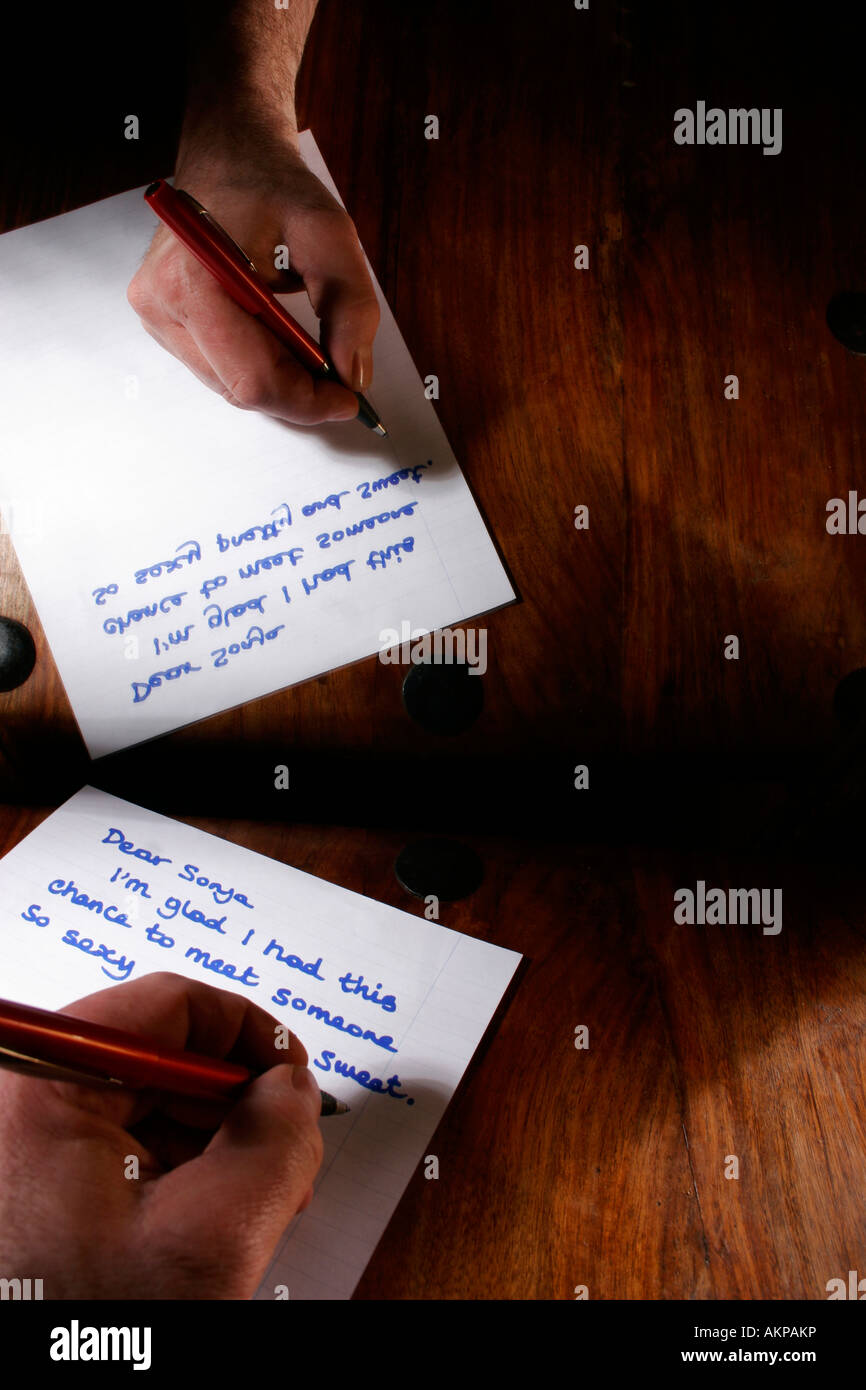 Dear Sonja
I'm glad I had this
chance to meet someone
so sexy pretty and sweet.
Dear Sonja
I'm glad I had this
chance to meet someone
so sexy sweet.
alamy
alamy
alamy
Image ID: AKPAKP
www.alamy.com